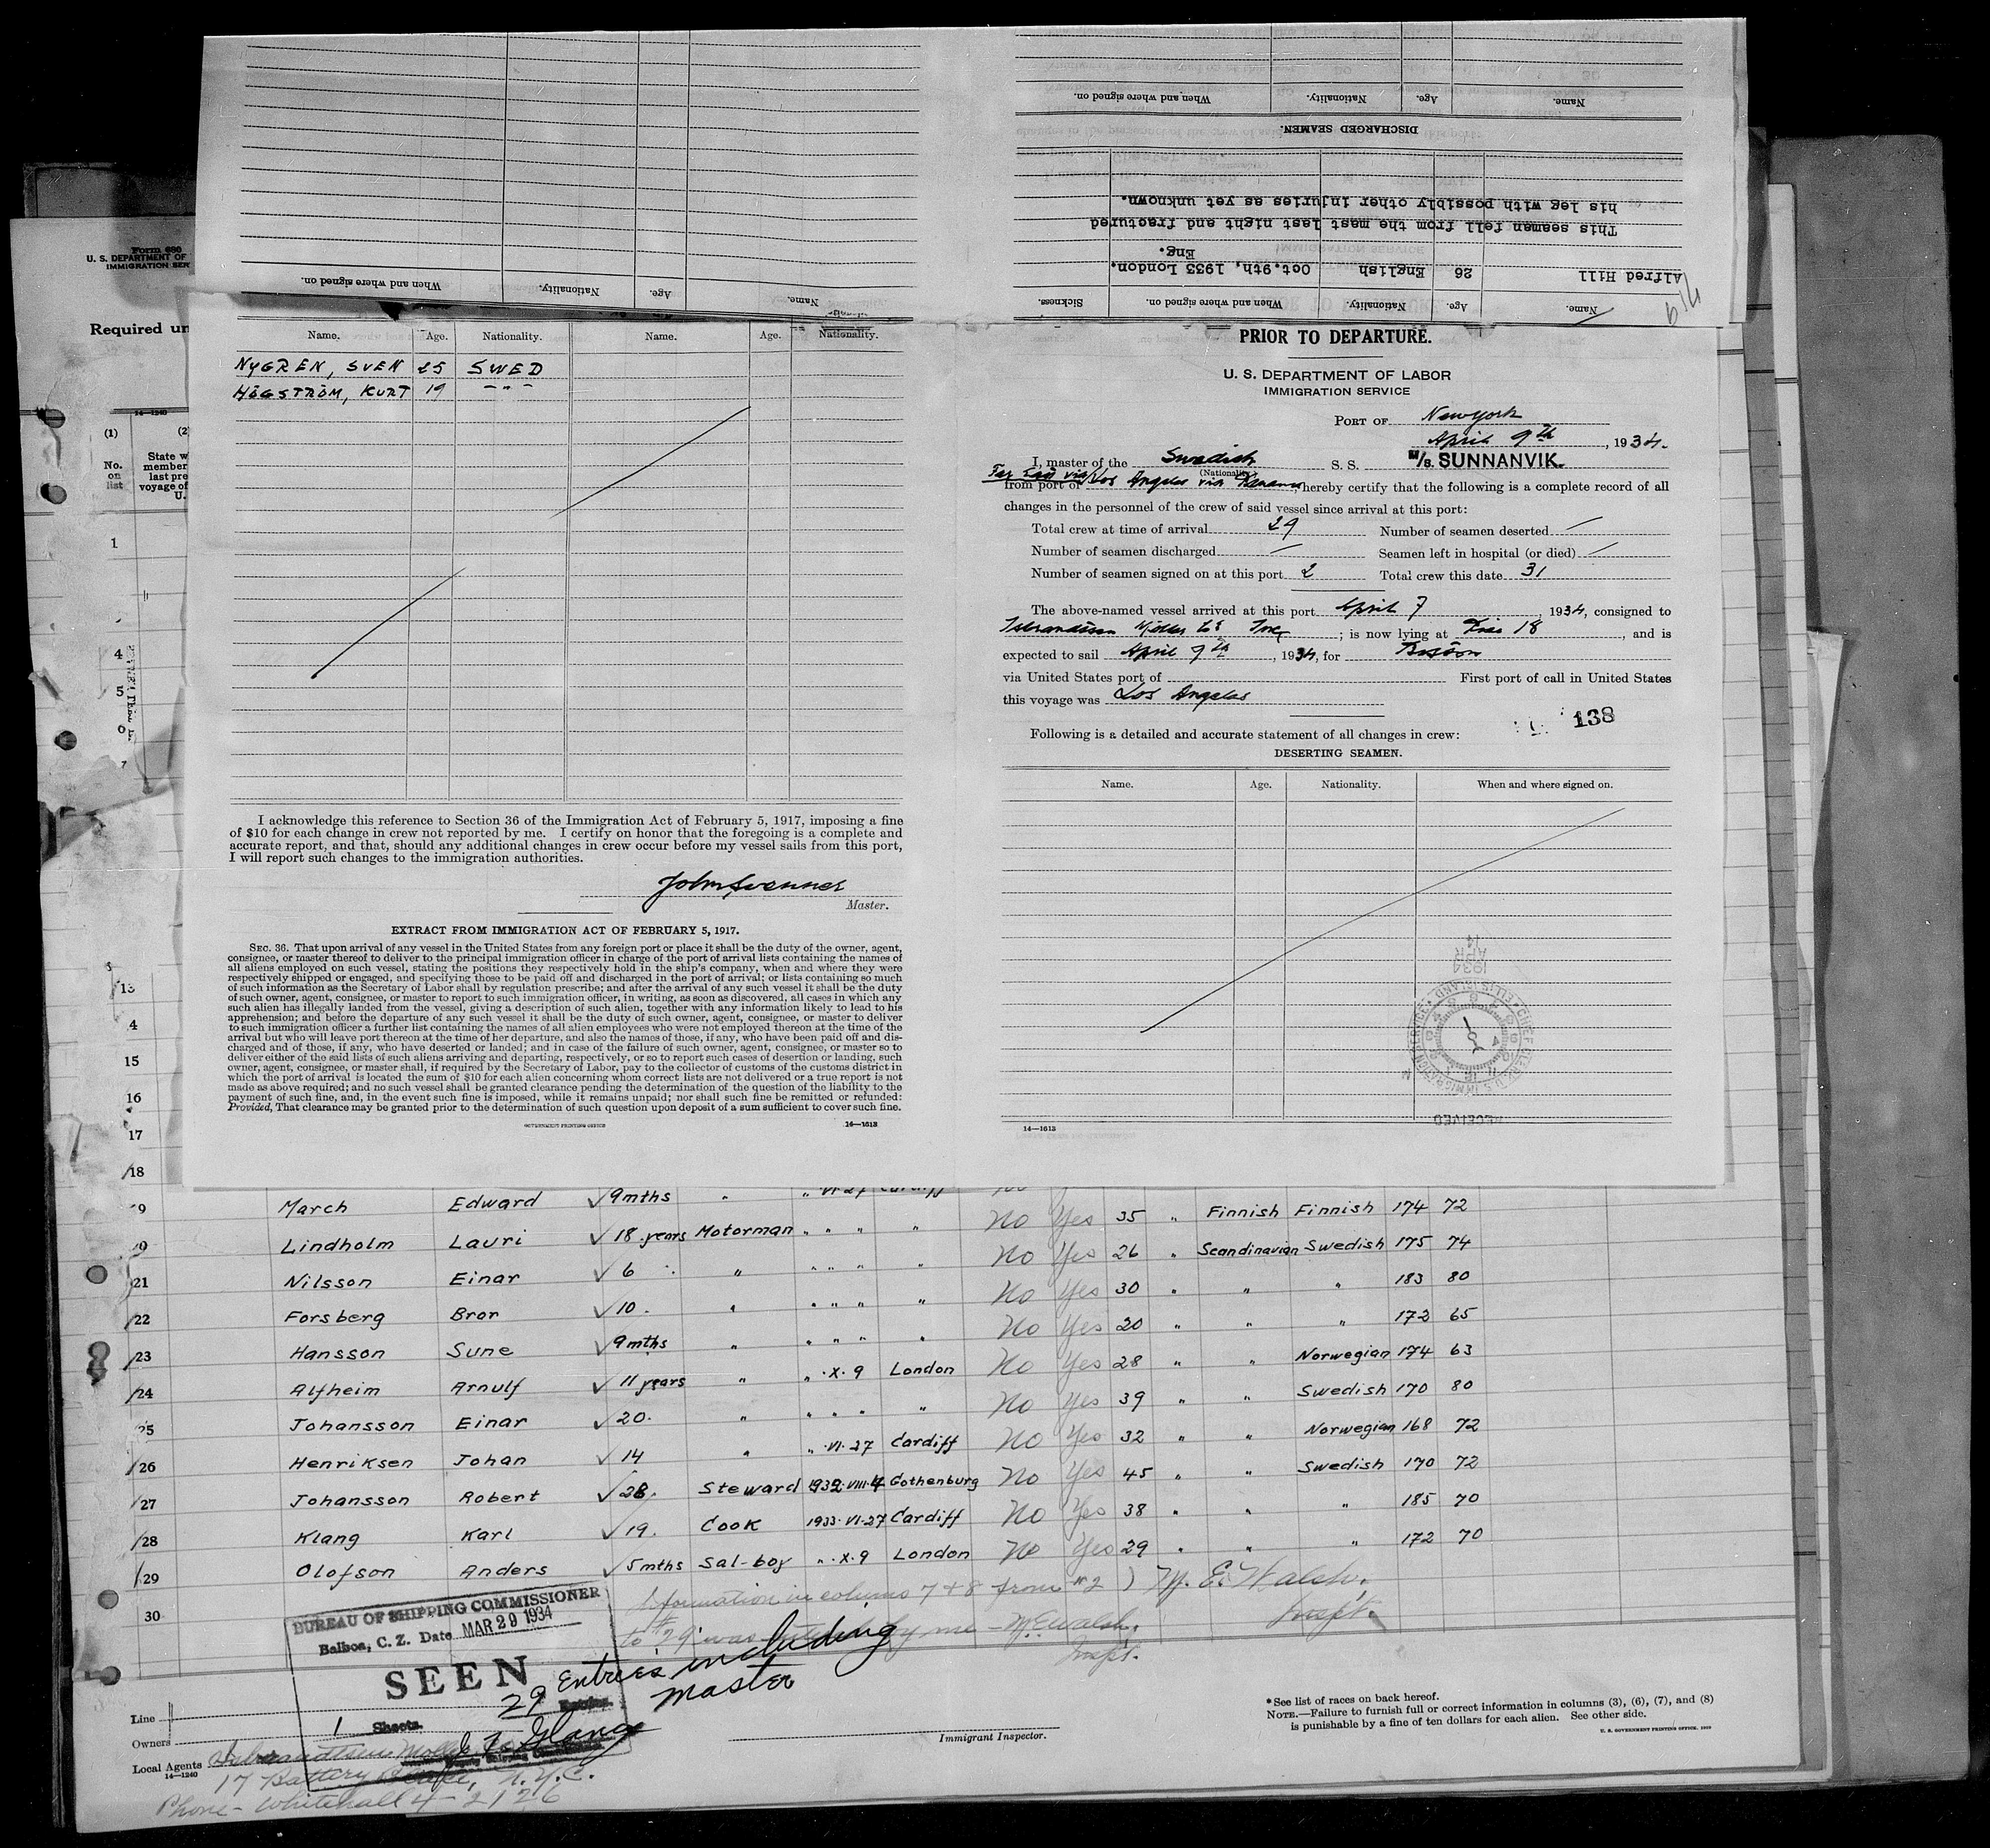 Name. Age. Nationality. When and where signed on.
DISCHARGED SEAMEN.
his leg with possibly other injuries as yet unknown.
This seaman fell from the mast last night and fractured
Eng.
Alfred Hill 26 English Oct.9th, 1933 London.
Name. Age. Nationality. When and where signed on. Sickness.
Name. Age. Nationality. When and where signed on.
Form 680
U. S. DEPARTMENT OF
IMMIGRATION SER
Required un
14—1240
(1) (2)
No. on list
State w
member
last pre
voyage of
U.
1
4
5
Name. Age. Nationality. Name. Age. Nationality.
NYGREN, SVEN 25 SWED
HÖGSTRÖM, KURT 19 — " —
I acknowledge this reference to Section 36 of the Immigration Act of February 5, 1917, imposing a fine
of $10 for each change in crew not reported by me. I certify on honor that the foregoing is a complete and
accurate report, and that, should any additional changes in crew occur before my vessel sails from this port,
I will report such changes to the immigration authorities.
Master.
EXTRACT FROM IMMIGRATION ACT OF FEBRUARY 5, 1917.
SEC. 36. That upon arrival of any vessel in the United States from any foreign port or place it shall be the duty of the owner, agent,
consignee, or master thereof to deliver to the principal immigration officer in charge of the port of arrival lists containing the names of
all aliens employed on such vessel, stating the positions they respectively hold in the ship's company, when and where they were
respectively shipped or engaged, and specifying those to be paid off and discharged in the port of arrival; or lists containing so much
of such information as the Secretary of Labor shall by regulation prescribe; and after the arrival of any such vessel it shall be the duty
of such owner, agent, consignee, or master to report to such immigration officer, in writing, as soon as discovered, all cases in which any
such alien has illegally landed from the vessel, giving a description of such alien, together with any information likely to lead to his
apprehension; and before the departure of any such vessel it shall be the duty of such owner, agent, consignee, or master to deliver
to such immigration officer a further list containing the names of all alien employees who were not employed thereon at the time of the
arrival but who will leave port thereon at the time of her departure, and also the names of those, if any, who have been paid off and dis-
charged and of those, if any, who have deserted or landed; and in case of the failure of such owner, agent, consignee, or master so to
deliver either of the said lists of such aliens arriving and departing, respectively, or so to report such cases of desertion or landing, such
owner, agent, consignee, or master shall, if required by the Secretary of Labor, pay to the collector of customs of the customs district in
which the port of arrival is located the sum of $10 for each alien concerning whom correct lists are not delivered or a true report is not
made as above required; and no such vessel shall be granted clearance pending the determination of the question of the liability to the
payment of such fine, and, in the event such fine is imposed, while it remains unpaid; nor shall such fine be remitted or refunded:
Provided, That clearance may be granted prior to the determination of such question upon deposit of a sum sufficient to cover such fine.
GOVERNMENT PRINTING OFFICE 14—1613
PRIOR TO DEPARTURE.
U. S. DEPARTMENT OF LABOR
IMMIGRATION SERVICE
PORT OF New York
April 9th, 1934.
I, master of the Swedish S. S. M/S. SUNNANVIK.
(Nationality)
Far East via Los Angeles via Panama
from port of , hereby certify that the following is a complete record of all
changes in the personnel of the crew of said vessel since arrival at this port:
Total crew at time of arrival 29 Number of seamen deserted —
Number of seamen discharged — Seamen left in hospital (or died) —
Number of seamen signed on at this port 2 Total crew this date 31
The above-named vessel arrived at this port April 7, 1934, consigned to
Isbrandtsen Moller Co Inc ; is now lying at Pier 18, and is
expected to sail April 9th, 1934, for Boston
via United States port of First port of call in United States
this voyage was Los Angeles
138
Following is a detailed and accurate statement of all changes in crew:
DESERTING SEAMEN.
Name. Age. Nationality. When and where signed on.
1934
APR
14
ELLIS ISLAND
RECEIVED
14—1613
13
4
15
16
17
18
19 March Edward 9mths " " VI 27 Cardiff No
Lindholm Lauri 18 years Motorman " " " " No Yes 35 " Finnish Finnish 174 72
21 Nilsson Einar 6 " " " " " " No Yes 26 " Scandinavian Swedish 175 74
22 Forsberg Bror 10 " " " " " No Yes 30 " " " 183 80
23 Hansson Sune 9mths " " " " " No Yes 20 " " " 172 65
24 Alfheim Arnulf 11 years " " .X.9 London No Yes 28 " " Norwegian 174 63
25 Johansson Einar 20. " " " " " No Yes 39 " " Swedish 170 80
26 Henriksen Johan 14 " " .VI.27 Cardiff No Yes 32 " " Norwegian 168 72
27 Johansson Robert 28. Steward 1932.VIII.4 Gothenburg No Yes 45 " " Swedish 170 72
28 Klang Karl 19. Cook 1933.VI.27 Cardiff No Yes 38 " " " 185 70
29 Olofson Anders 5mths Sal-boy " .X.9 London No Yes 29 " " " 172 70
30
Information in columns 7 & 8 from #2 ) M. E. Walsh,
to #29 was by me — M.E. Walsh, Inspt.
Inspt.
BUREAU OF SHIPPING COMMISSIONER
Balboa, C. Z. Date MAR 29 1934
SEEN
29 Entries including
Master
1 Sheets
Line
Owners
Local Agents Isbrandtsen Moller
14—1240
17 Battery Place, N.Y.C.
Phone - Whitehall 4-2126
Immigrant Inspector.
* See list of races on back hereof.
NOTE.—Failure to furnish full or correct information in columns (3), (6), (7), and (8)
is punishable by a fine of ten dollars for each alien. See other side.
U. S. GOVERNMENT PRINTING OFFICE